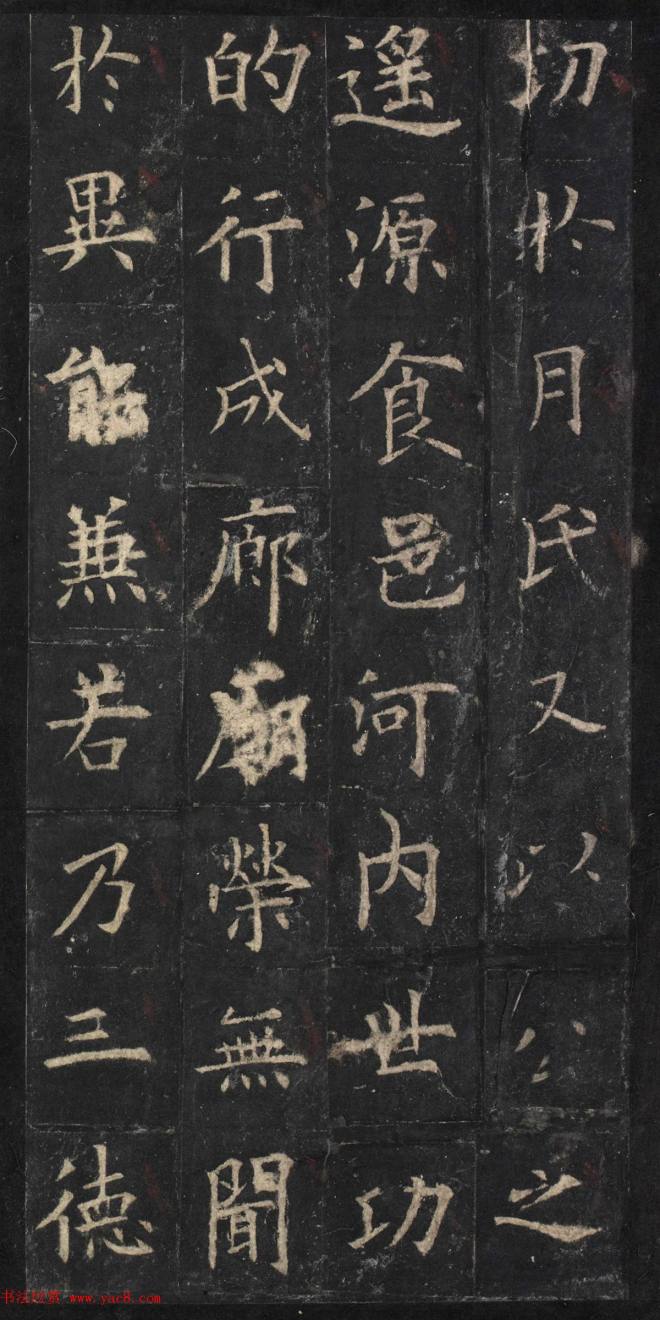 切於月氏又以公之
遥源食邑河内世功
的行成廊廟榮無聞
於異能兼若乃三德
书法欣赏 www.yac8.com